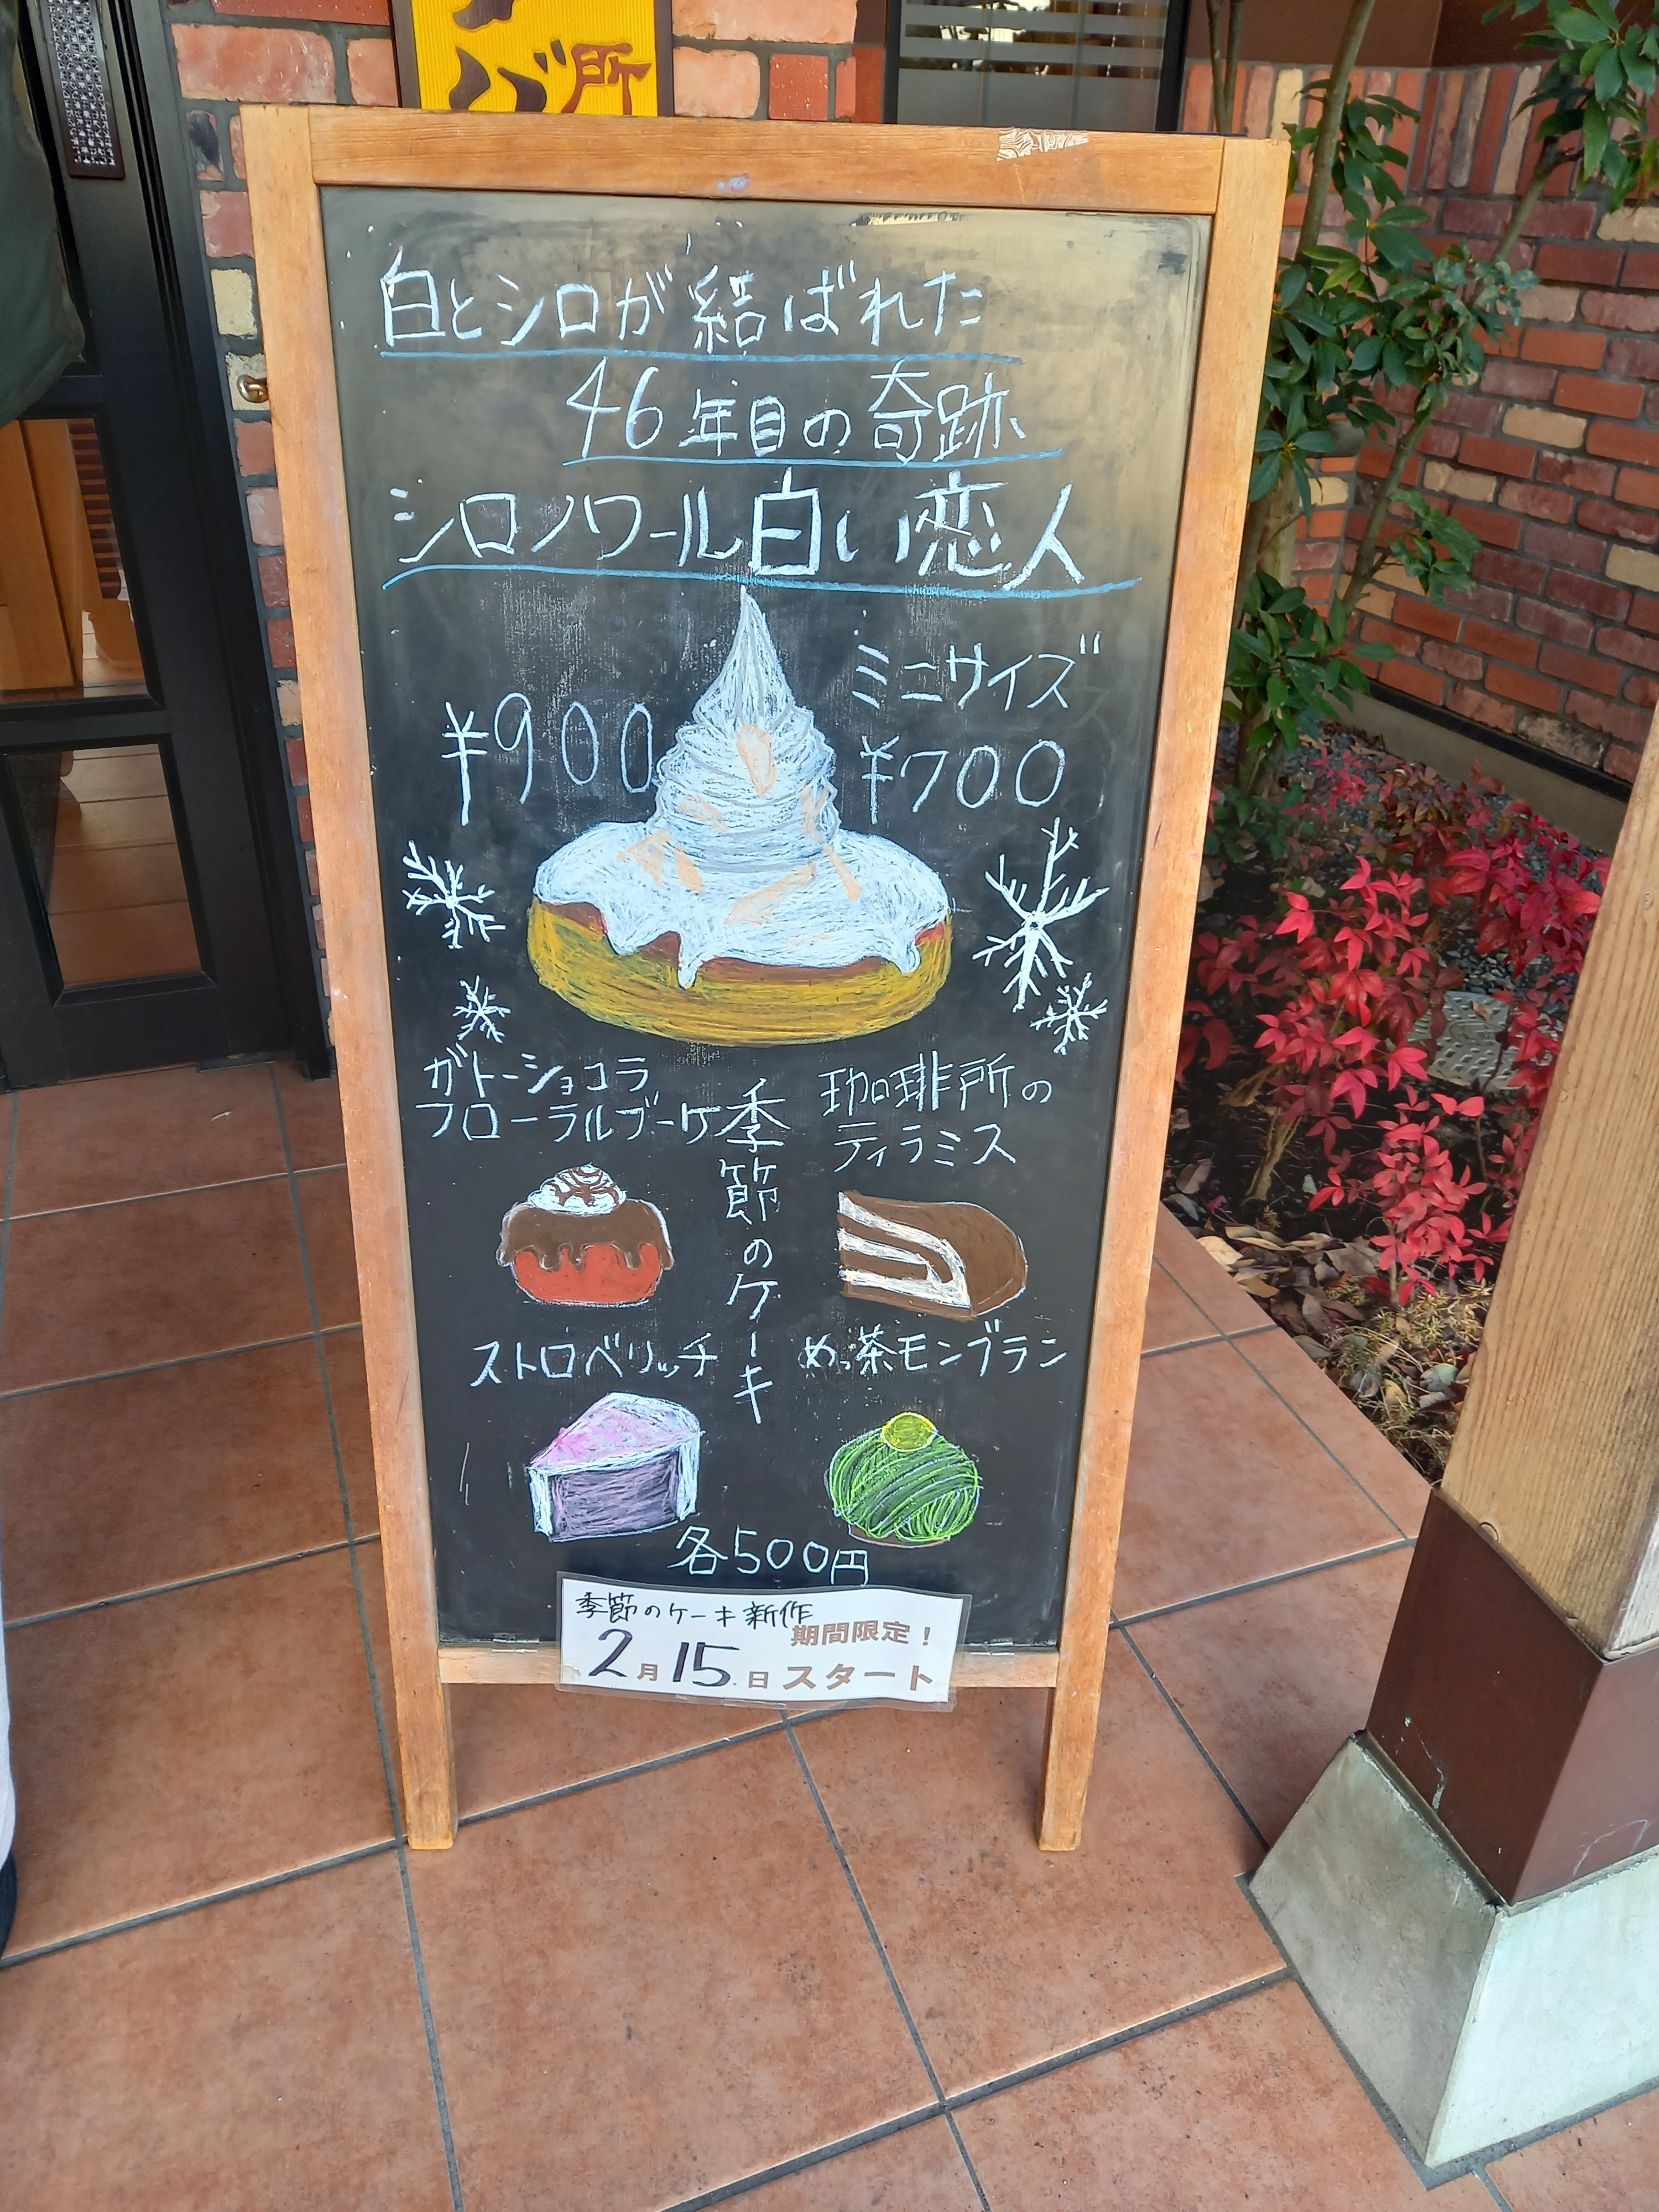 所
白とシロが結ばれた
46年目の奇跡
シロノワール白い恋人
¥900
ミニサイズ
¥700
ガトーショコラ
フローラルブーケ
季節のケーキ
珈琲所の
ティラミス
ストロベリッチ
めっ茶モンブラン
各500円
季節のケーキ新作
期間限定！
2月15日スタート